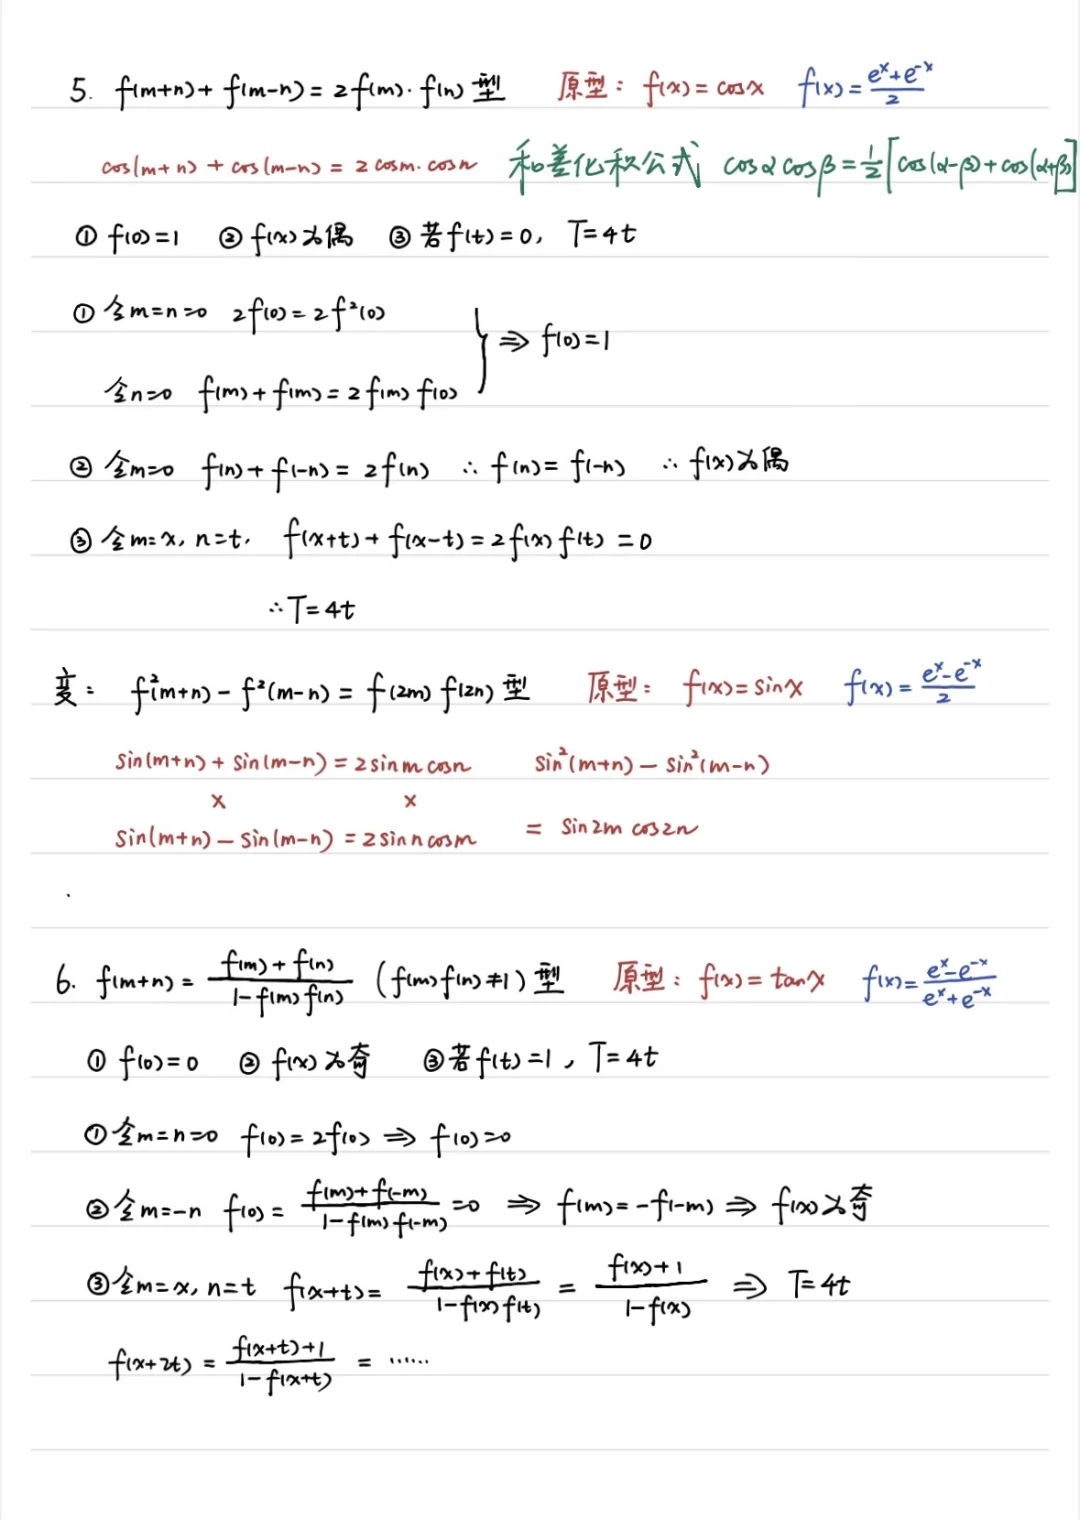 5. f(m+n)+f(m-n)=2f(m)·f(n)型 原型：f(x)=cosx f(x)=\frac{e^x+e^{-x}}{2}
cos(m+n)+cos(m-n)=2cosm·cosn 和差化积公式 cosαcosβ=\frac{1}{2}[cos(α-β)+cos(α+β)]
① f(0)=1 ② f(x)为偶 ③ 若f(t)=0, T=4t
① 令m=n=0 2f(0)=2f²(0)
⇒ f(0)=1
令n=0 f(m)+f(m)=2f(m)f(0)
② 令m=0 f(n)+f(-n)=2f(n) ∴ f(n)=f(-n) ∴ f(x)为偶
③ 令m=x, n=t, f(x+t)+f(x-t)=2f(x)f(t)=0
∴T=4t
变： f²(m+n)-f²(m-n)=f(2m)f(2n)型 原型： f(x)=sinx f(x)=\frac{e^x-e^{-x}}{2}
sin(m+n)+sin(m-n)=2sinmcosn sin²(m+n)-sin²(m-n)
× ×
sin(m+n)-sin(m-n)=2sinncosm = sin2mcos2n
6. f(m+n)=\frac{f(m)+f(n)}{1-f(m)f(n)} (f(m)f(n)≠1)型 原型：f(x)=tanx f(x)=\frac{e^x-e^{-x}}{e^x+e^{-x}}
① f(0)=0 ② f(x)为奇 ③若f(t)=1, T=4t
①令m=n=0 f(0)=2f(0) ⇒ f(0)=0
②令m=-n f(0)=\frac{f(m)+f(-m)}{1-f(m)f(-m)}=0 ⇒ f(m)=-f(-m) ⇒ f(x)为奇
③令m=x, n=t f(x+t)=\frac{f(x)+f(t)}{1-f(x)f(t)}=\frac{f(x)+1}{1-f(x)} ⇒ T=4t
f(x+2t)=\frac{f(x+t)+1}{1-f(x+t)}=······